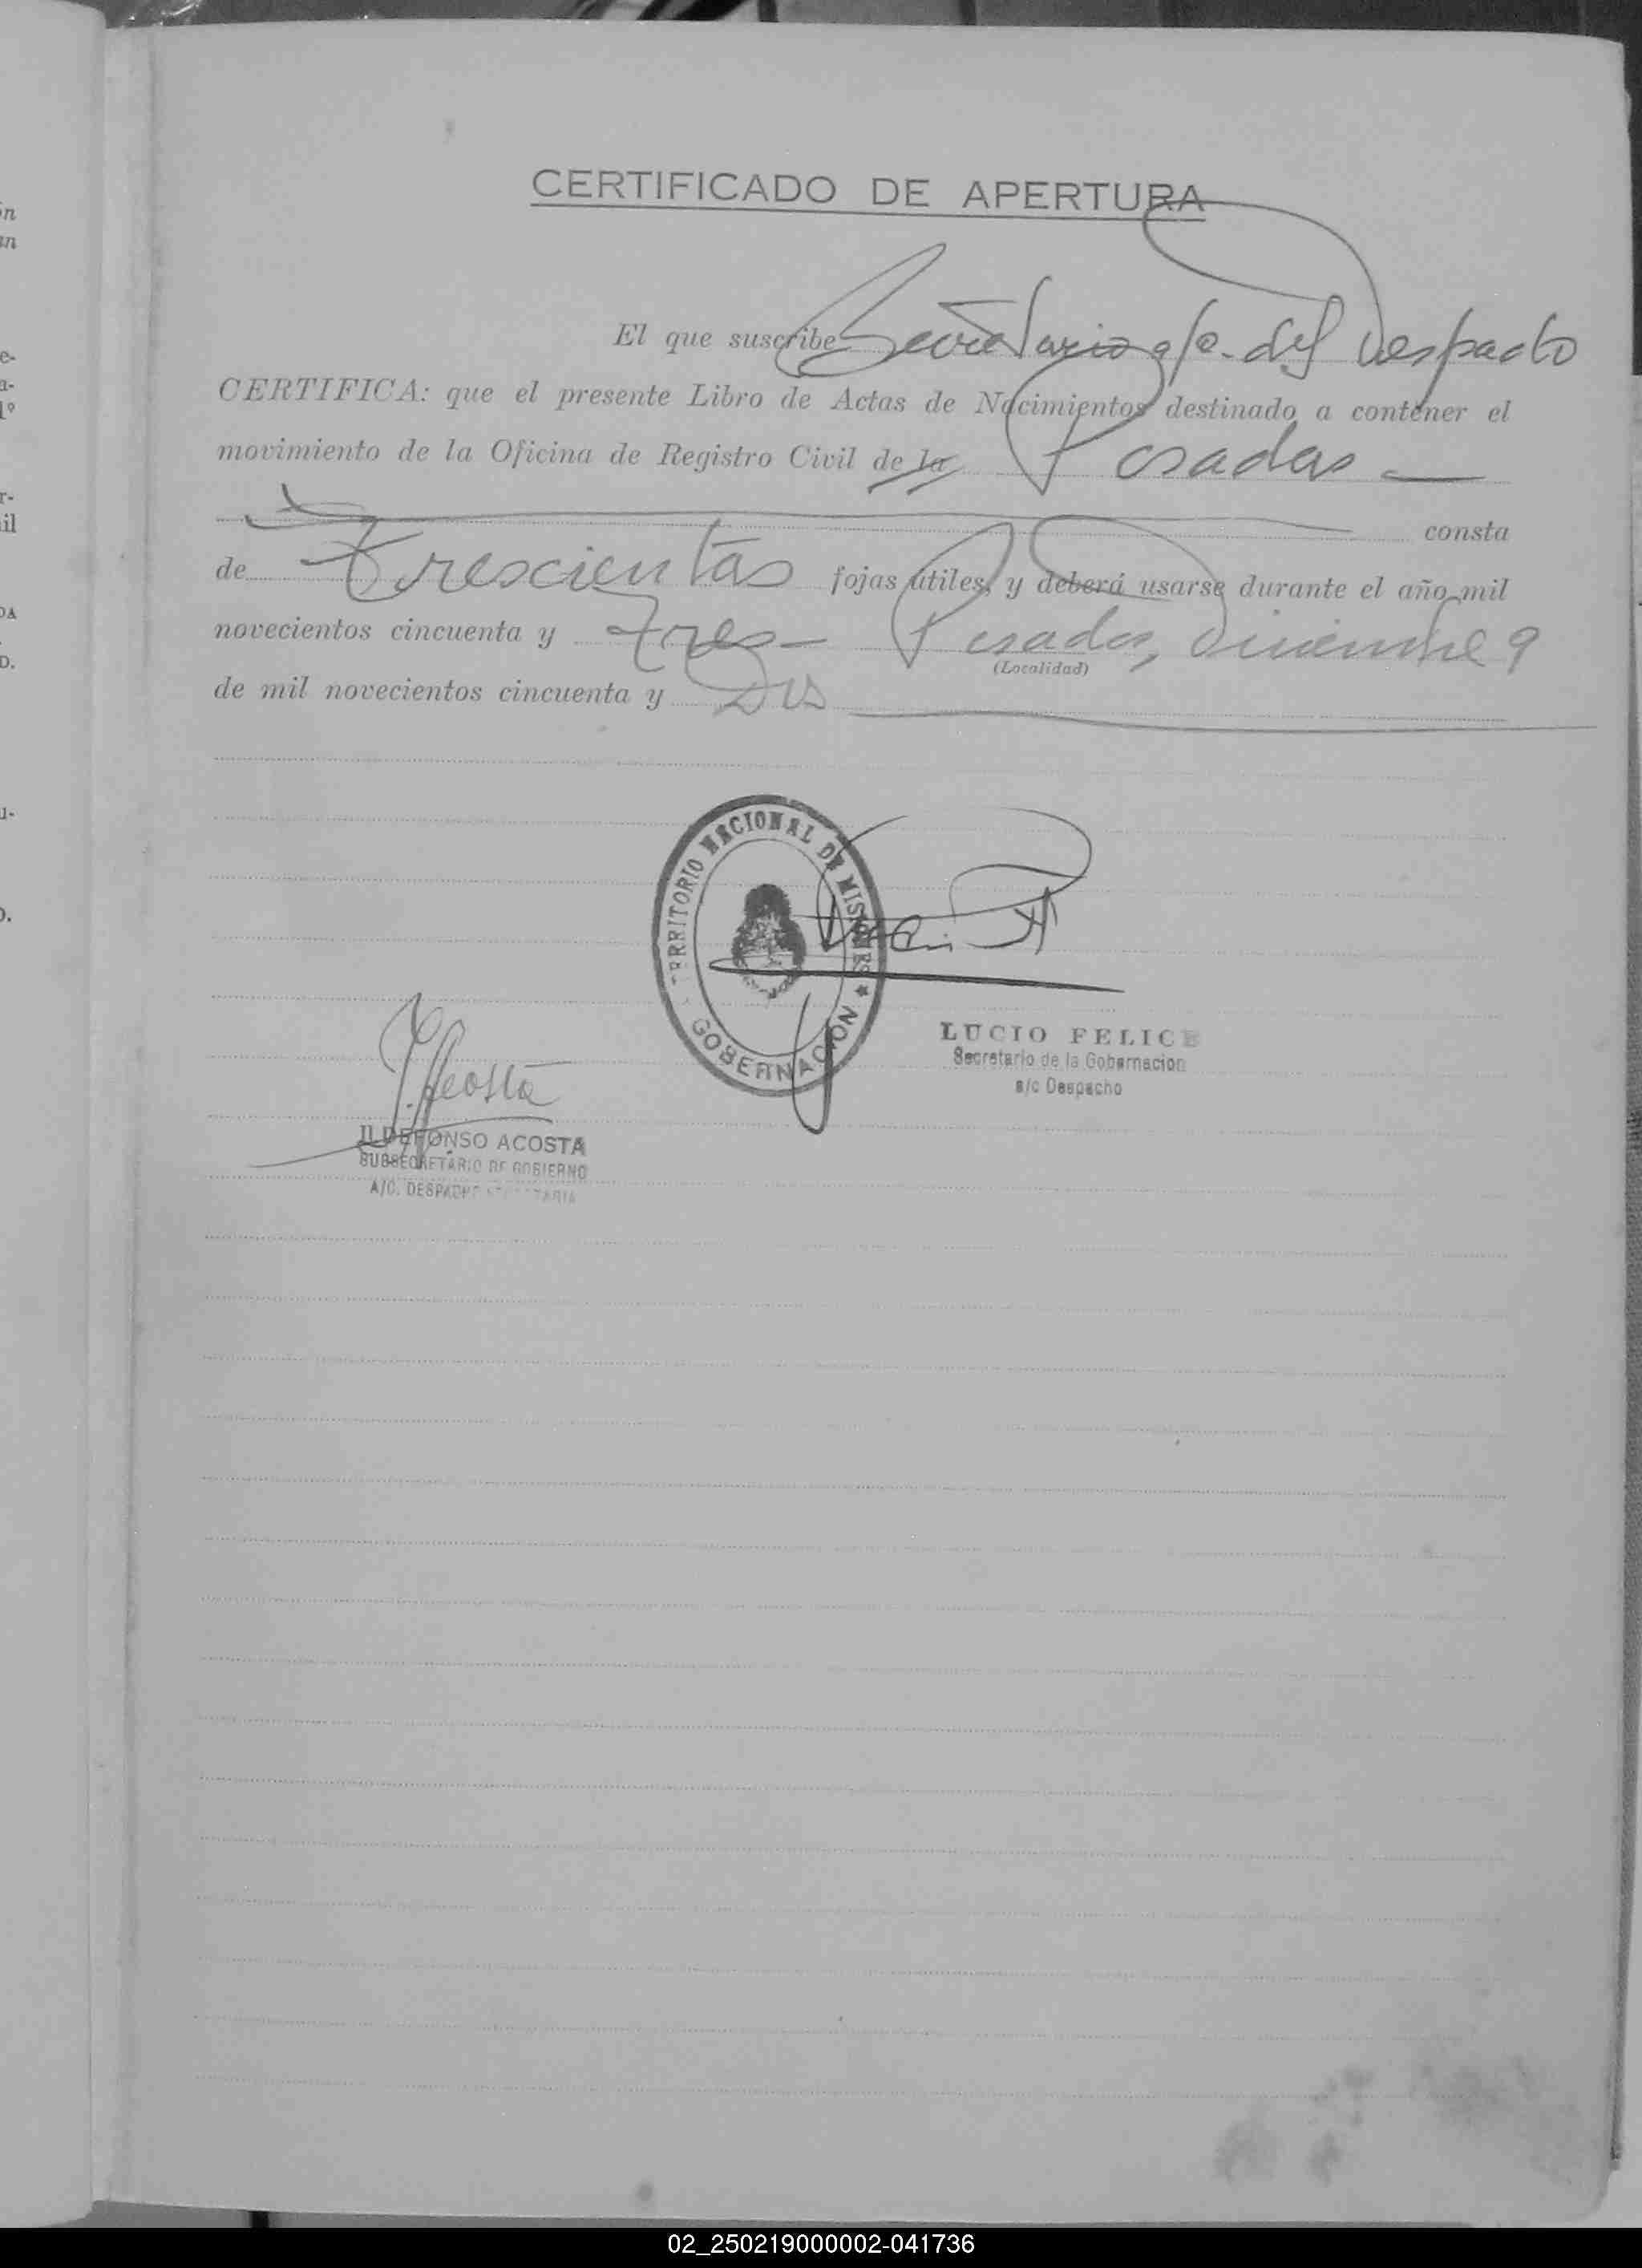 CERTIFICADO DE APERTURA
El que suscribe Secretario a/c. del Despacho
CERTIFICA: que el presente Libro de Actas de Nacimientos destinado a contener el
movimiento de la Oficina de Registro Civil de la Posadas
consta
de trescientas fojas útiles, y deberá usarse durante el año mil
novecientos cincuenta y tres Posadas, Diciembre 9
(Localidad)
de mil novecientos cincuenta y dos
TERRITORIO NACIONAL DE MISIONES
GOBERNACION
LUCIO FELICE
Secretario de la Gobernacion
a/c Despacho
Acosta
ILDEFONSO ACOSTA
SUBSECRETARIO DE GOBIERNO
A/C. DESPACHO
02_250219000002-041736